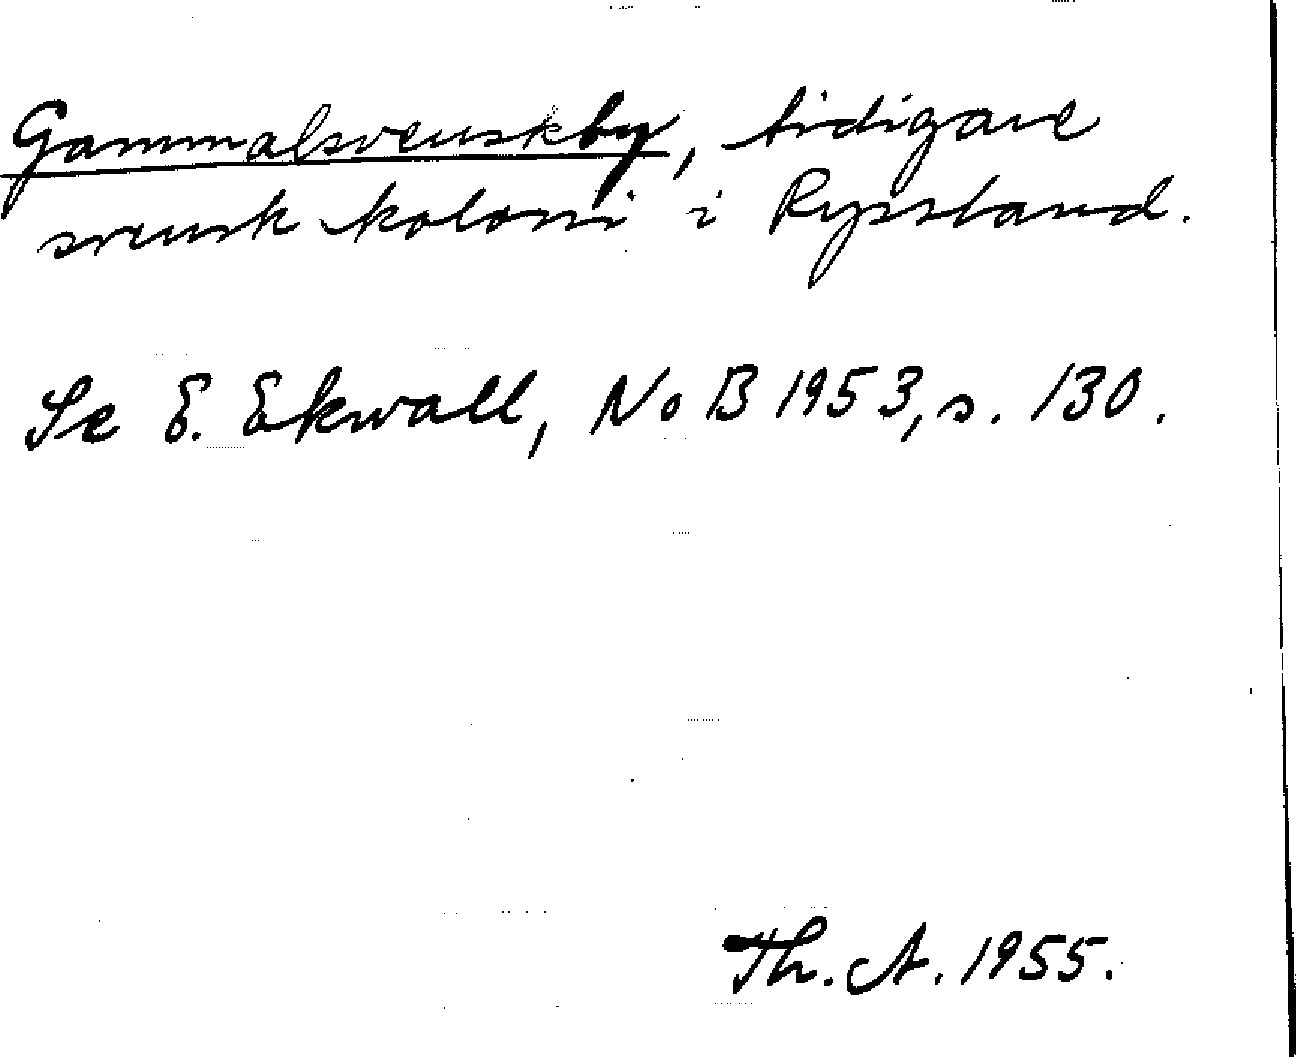 Gammalsvenskby, tidigare
svensk koloni i Ryssland.
Se E. Ekwall, NoB 1953, s. 130.
Th. A. 1955.